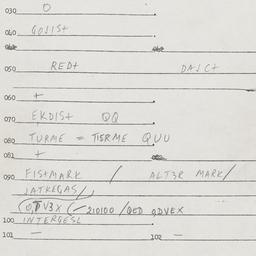 030 O
040 GOSIS+
050 RED+ DASC+
060 +
070 EKDIS+ QQ
080 TURME = TISRME QUU
081 +
090 FIS+MARK / ALT3R MARK/
JATKEGAS/
210100 /QED QDVEX
100 INTERGESL
101 — 102 —